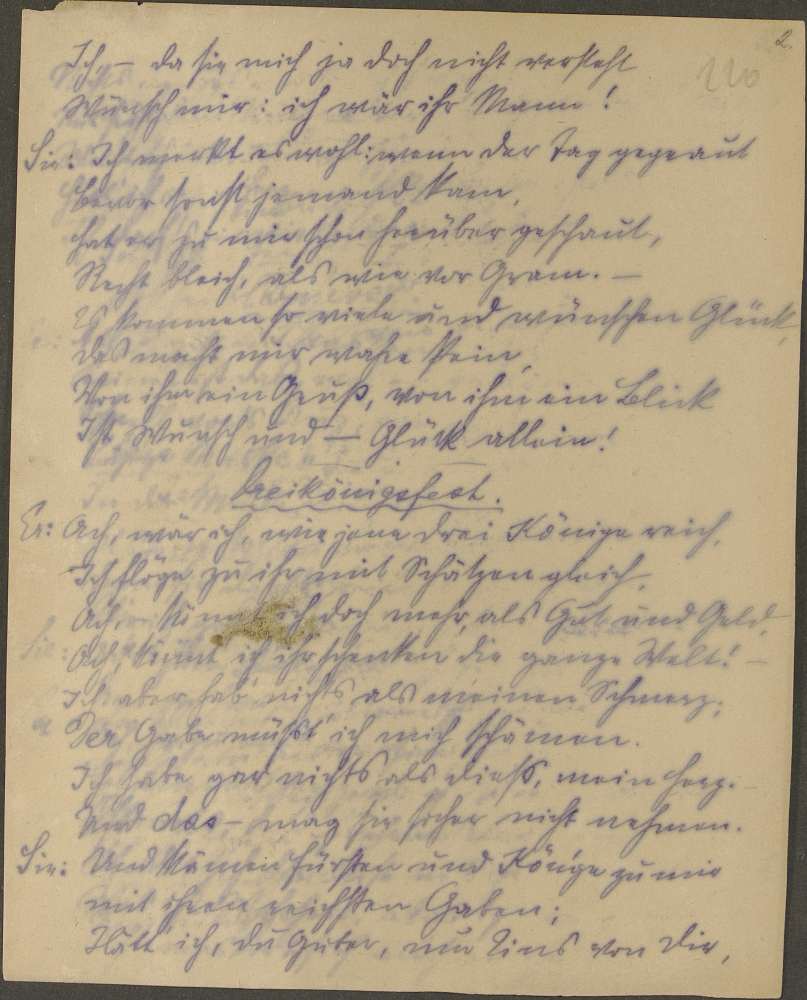 2.
110
Ich, – da sie mich ja doch nicht versteht
Wünsch mir: ich wär ihr Mann!
Sie: Ich merkt es wohl: wenn der Tag gegraut
Bevor sonst jemand kam,
hat er zu mir schon herüber geschaut,
Recht bleich, als wie vor Gram. –
Es kommen so viele und wünschen Glück,
Das macht mir wahre Pein,
Von ihm ein Gruß, von ihm ein Blick
Ist Wunsch und – Glück allein!
Dreikönigsfest.
Er: Ach, wär ich, wie jene drei Könige reich,
Ich flöge zu ihr mit Schätzen gleich,
Ach, könnt ich doch mehr, als Gut und Geld,
Ach, könnt ich ihr schenken die ganze Welt! –
Ich aber hab' nichts als meinen Schmerz,
Der Gabe müßt' ich mich schämen.
Ich habe gar nichts als dieß, mein Herz.
Und das – mag sie sicher nicht nehmen.
Sie: Und kämen Fürsten und Könige zu mir
mit ihren reichsten Gaben;
Hätt' ich, du Guter, nur Eins von Dir,